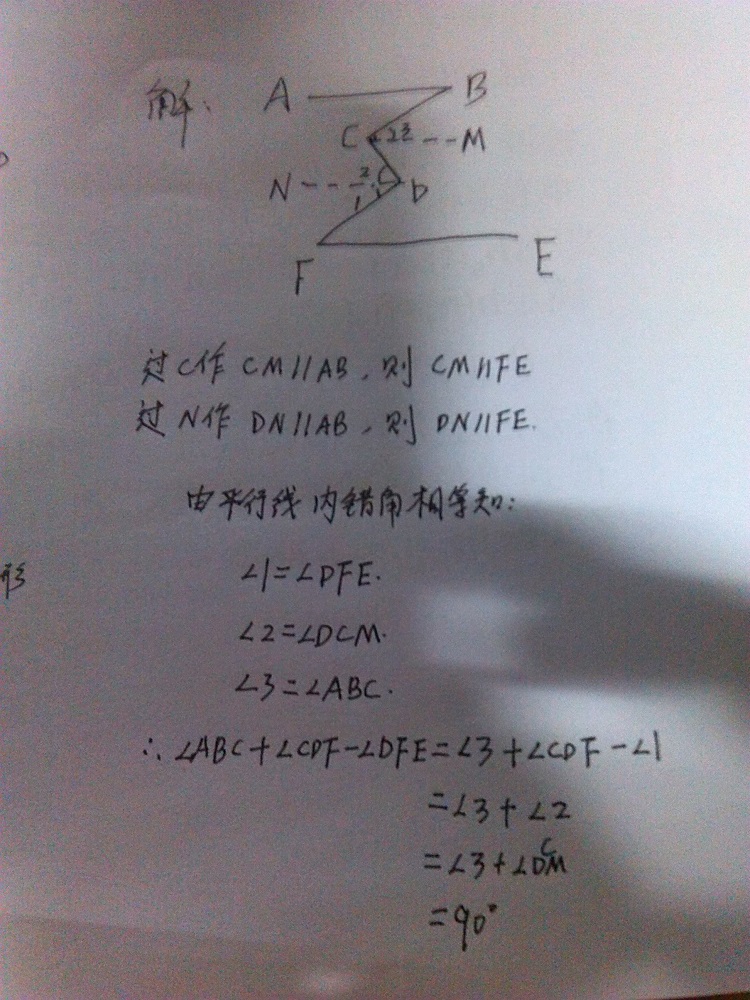 解: A B
C 2 3 M
N 2 D
1
F E
过C作 CM//AB,则 CM//FE
过N作 DN//AB,则 DN//FE.
由平行线内错角相等知:
∠1=∠DFE.
形
∠2=∠DCM.
∠3=∠ABC.
∴∠ABC+∠CDF-∠DFE=∠3+∠CDF-∠1
=∠3+∠2
=∠3+∠DCM
=90°